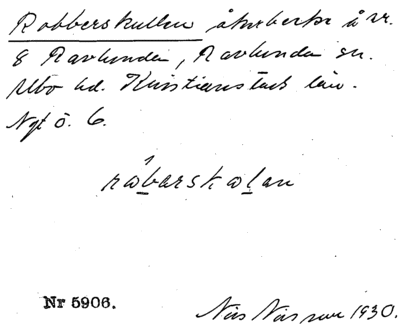 Robberskullen åkerbacke å nr.
8 Ravlunda, Ravlunda sn.
Albo hd. Kristianstads län.
Ngt ö. 6.
råbarskolan
Nr 5906.
Nils Nilsson 1930.